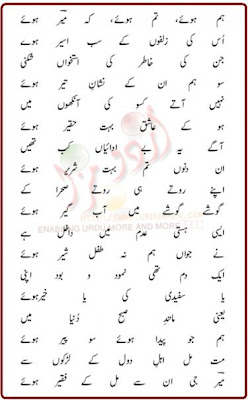 ہم ہوئے، تم ہوئے، کہ میرؔ ہوئے
اُس کی زلفوں کے سب اسیر ہوئے
جن کی خاطر کی استخواں شکنی
سو ہم ان کے نشانِ تیر ہوئے
نہیں آتے کسو کی آنکھوں میں
ہو کے عاشق بہت حقیر ہوئے
آگے یہ بے ادائیاں کب تھیں
ان دنوں تم بہت شریر ہوئے
اپنے روتے ہی روتے صحرا کے
گوشے گوشے میں آب گیر ہوئے
ایسی ہستی عدم میں داخل ہے
نے جواں ہم نہ طفلِ شیر ہوئے
ایک دم تھی نمود و بود اپنی
یا سفیدی کی یا خیر ہوئے
یعنی مانندِ صبح دُنیا میں
ہم جو پیدا ہوئے سو پیر ہوئے
مت مل اہلِ دول کے لڑکوں سے
میرؔ جی ان سے مل کے فقیر ہوئے
ENABLING URDU MORE AND MORE